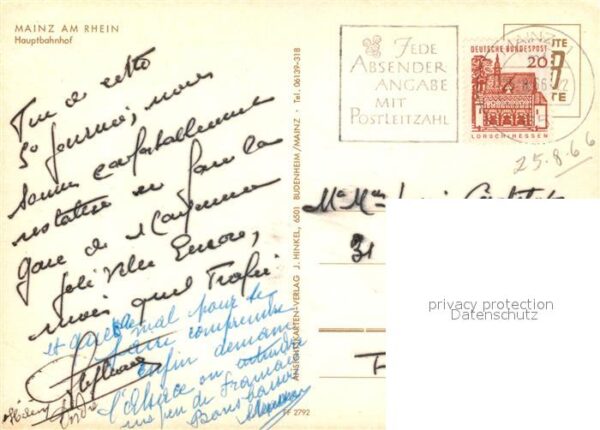 MAINZ AM RHEIN
Hauptbahnhof
Fin de cette
5e journée, nous
sommes confortablement
installés en face la
gare de Mayence
jolie ville Encore,
mais quel Trafic
et quel mal pour se
faire comprendre
enfin demain
l'Alsace on entendra
un peu de Français
Bons baisers
ANSICHTSKARTEN-VERLAG J. HINKEL, 6501 BUDENHEIM/MAINZ · Tel. 06139-318
FF 2792
JEDE
ABSENDER
ANGABE
MIT
POSTLEITZAHL
MAINZ
DEUTSCHE BUNDESPOST
20
LORSCH/HESSEN
25-8-66
31
privacy protection
Datenschutz